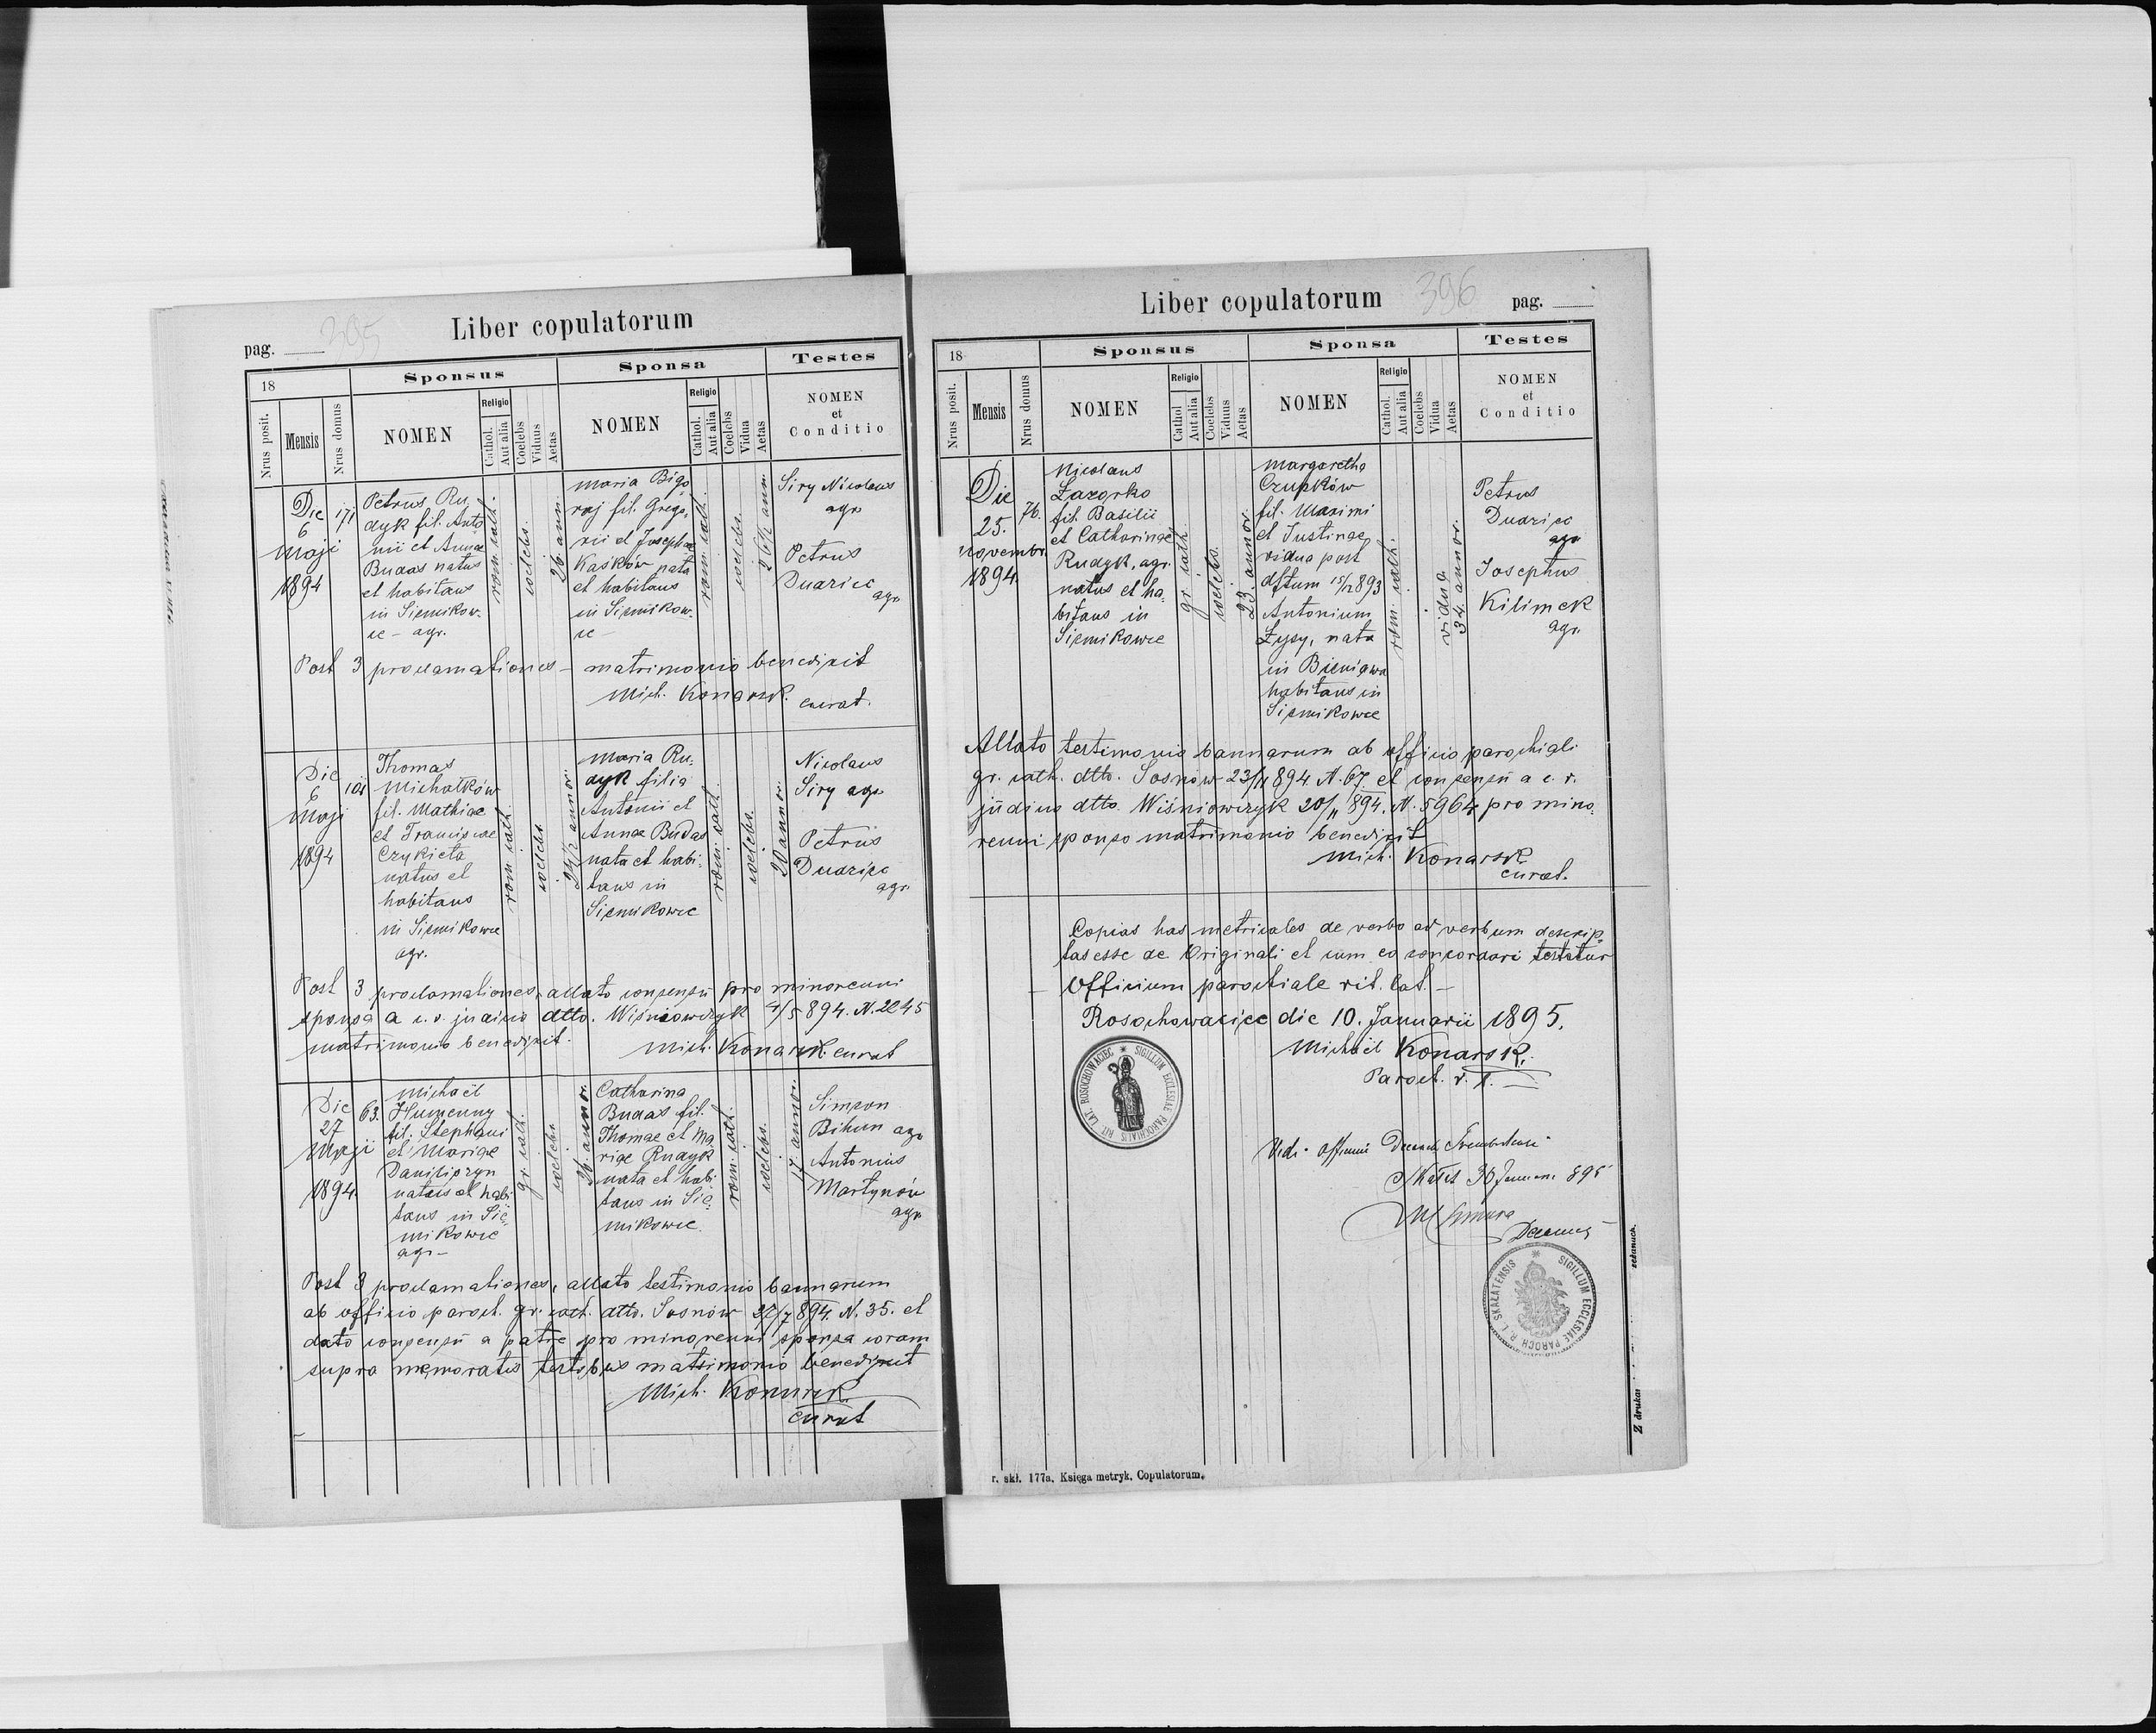 395
Liber copulatorum
pag.
18
Sponsus
Sponsa
Testes
Nrus posit.
Mensis
Nrus domus
NOMEN
Religio
Cathol.
Aut alia
Coelebs
Viduus
Aetas
NOMEN
Religio
Cathol.
Aut alia
Coelebs
Vidua
Aetas
NOMEN
et
Conditio
Die
6
Maji
1894
171
Petrus Ru-
dyk fil. Anto
nii et Annae
Budas natus
et habitans
in Siemikow-
ce - agr.
rom. cath.
coelebs.
26 ann.
Maria Bigo
raj fil. Grego-
rii et Josephae
Kaśków nata
et habitans
in Siemikow-
ce -
rom. cath.
coelebs.
26 1/2 ann.
Siry Nicolaus
agr.
Petrus
Duarice
agr.
Post 3 proclamationes - matrimonio benedixit
Mich. Konarsk. curat.
Die
6
Maji
1894
Thomas
Michałków
fil. Mathiae
et Franciscae
Czykieta
natus et
habitans
in Siemikowce
agr.
rom. cath.
coelebs.
24 1/2 annor.
Maria Ru-
dyk filia
Antonii et
Annae Budas
nata et habi-
tans in
Siemikowce
rom. cath.
coelebs.
20 annor.
Nicolaus
Siry agr.
Petrus
Duarice
agr.
Post 3 proclamationes, allato consensu pro minorenni
sponsa a c. r. judicio dtto. Wiśniowczyk 4/5 894. N. 2245
matrimonio benedixit.
Mich. Konarsk. curat
Die
27
Maji
1894.
63.
Michaël
Humenny
fil. Stephani
et Mariae
natus et habi
tans in Sie-
mikowce
agr -
gr. cath.
coelebs
26 annor.
Catharina
Budas fil.
Thomae et Ma
riae Rudyk
nata et habi
tans in Sie-
mikowce.
rom. cath.
coelebs.
17 annor.
Simeon
Bihun agr
Antonius
Martynów
agr
Post 3 proclamationes, allato testimonio bannorum
ab officio paroch. gr. cath. dtto. Sosnów 27/ 894. N. 35. et
dato consensu a patre pro minorenni sponsa coram
supra memoratis testibus matrimonio benedixit
Mich. Konarsk
curat
396
Liber copulatorum
pag.
18
Sponsus
Sponsa
Testes
Nrus posit.
Mensis
Nrus domus
NOMEN
Religio
Cathol
Aut alia
Coelebs
Viduus
Aetas
NOMEN
Religio
Cathol.
Aut alia
Coelebs
Vidua
Aetas
NOMEN
et
Conditio
Die
25.
Novembr.
1894.
76.
Nicolaus
Łazorko
fil. Basilii
et Catharinae
Rudyk, agr.
natus et ha-
bitans in
Siemikowce
gr. cath
coelebs.
23 annor.
Margaretha
Czupków
fil. Maximi
et Justinae
vidua post
dftum 15/12 893
Antonium
Łysy, nata
in Bieniawa
habitans in
Siemikowce
rom. cath.
vidua.
34 annor.
Petrus
Duarice
agr
Josephus
Kilimek
agr.
Allato testimonio bannorum ab officio parochiali
gr. cath. dtto. Sosnów 23/11 894 N. 67 et consensu a c. r.
judicio dtto. Wiśniowczyk 20/11 894. N. 5964 pro mino-
renni sponso matrimonio benedixit
Mich. Konarsk
curat.
Copias has metricales de verbo ad verbum descrip-
tas esse de Originali et cum eo concordari testatur
- Officium parochiale rit. lat. -
Rosochowaciec die 10. Januarii 1895.
Michaël Konarsk.
Paroch. r. l.
SIGILLUM ECCLESIAE PAROCHIALIS RIT. LAT. ROSOCHOWACIEC
Skałat 30 Januarii 895
Decanus
SIGILLUM ECCLESIAE PAROCH R. L. SKAŁATENSIS
r. skł. 177a, Księga metryk. Copulatorum.
Z drukar